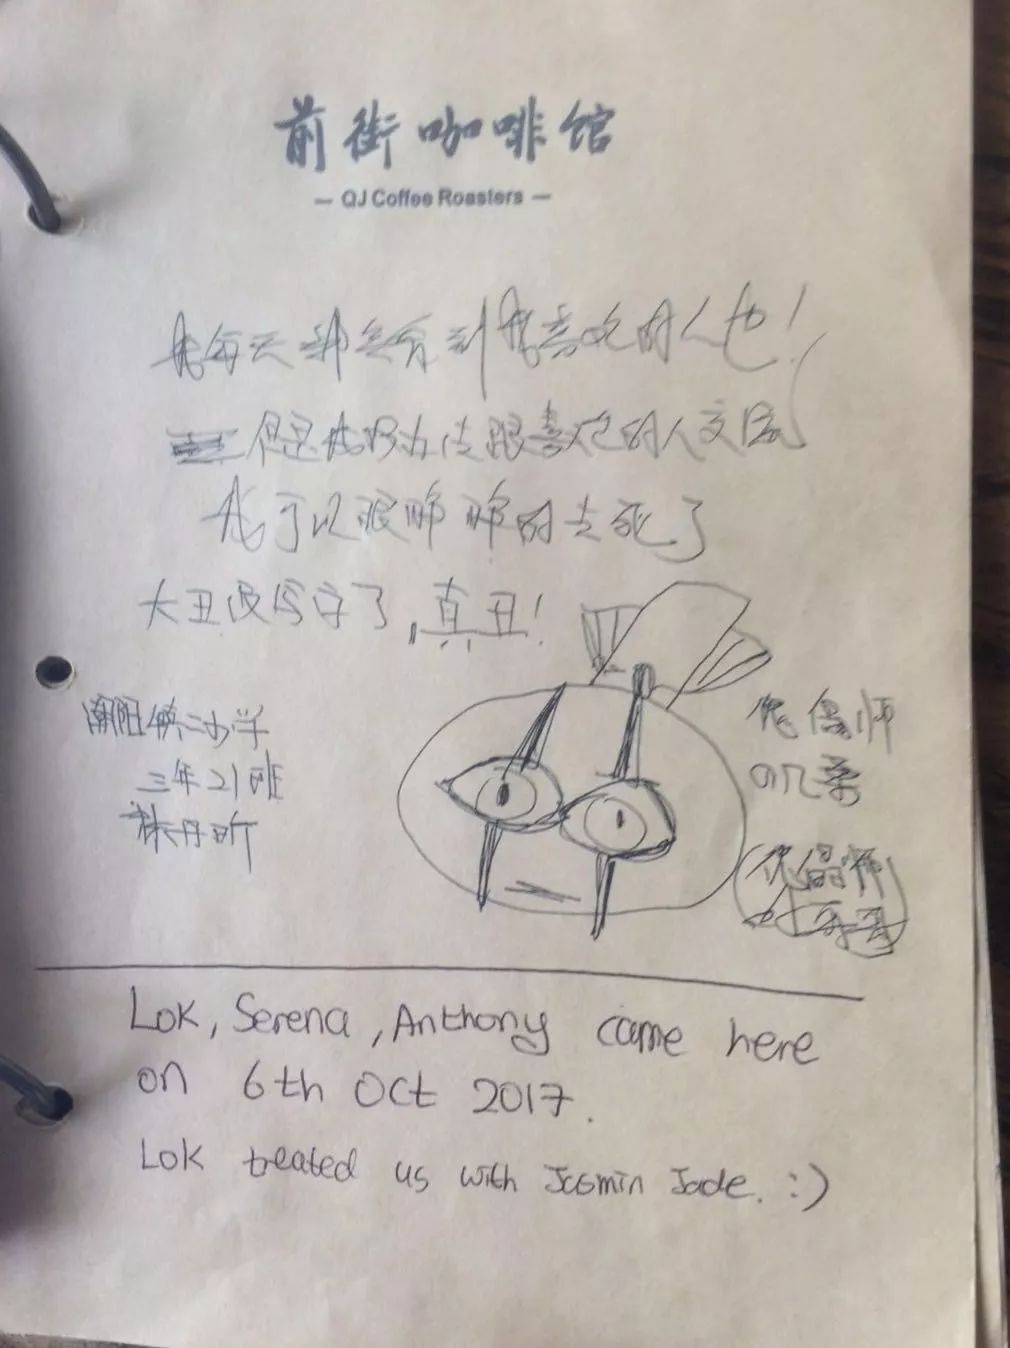 前街咖啡馆
— QJ Coffee Roasters —
我每天都会看到我喜欢的人也！
但是我没办法跟喜欢的人交流
我可以很 的去死了
太丑没写字了，真丑！
潮阳镇二小学
三年21班
林丹昕
傀儡师
の
傀儡师
Lok, Serena, Anthony came here
on 6th Oct 2017.
Lok treated us with Jasmin Jade. :)